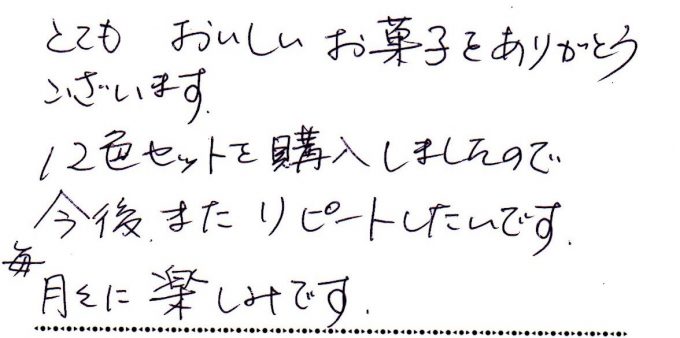 とても おいしい お菓子をありがとう
ございます.
12色セットを購入しましたので
今後.また リピートしたいです.
毎月々に 楽しみです.